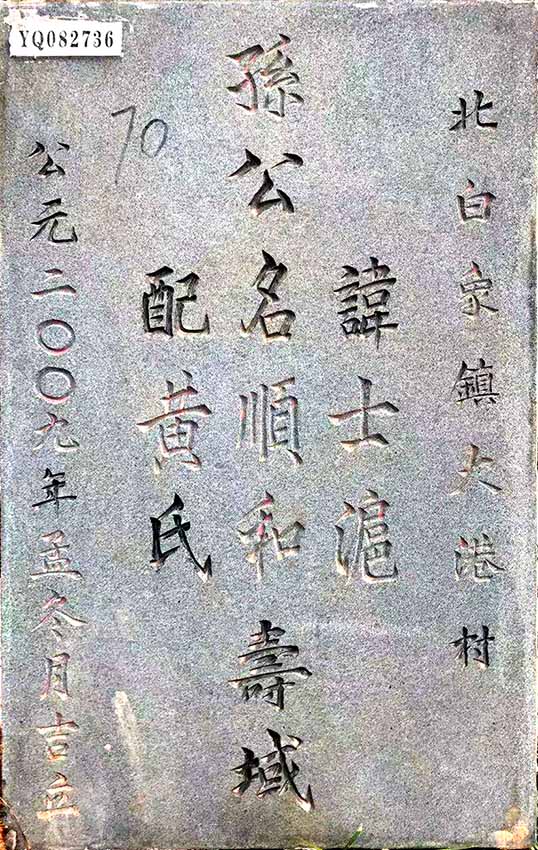 YQ082736
70
北白象鎮大港村
諱士滬
孫公名順和壽域
配黄氏
公元二〇〇九年孟冬月吉立